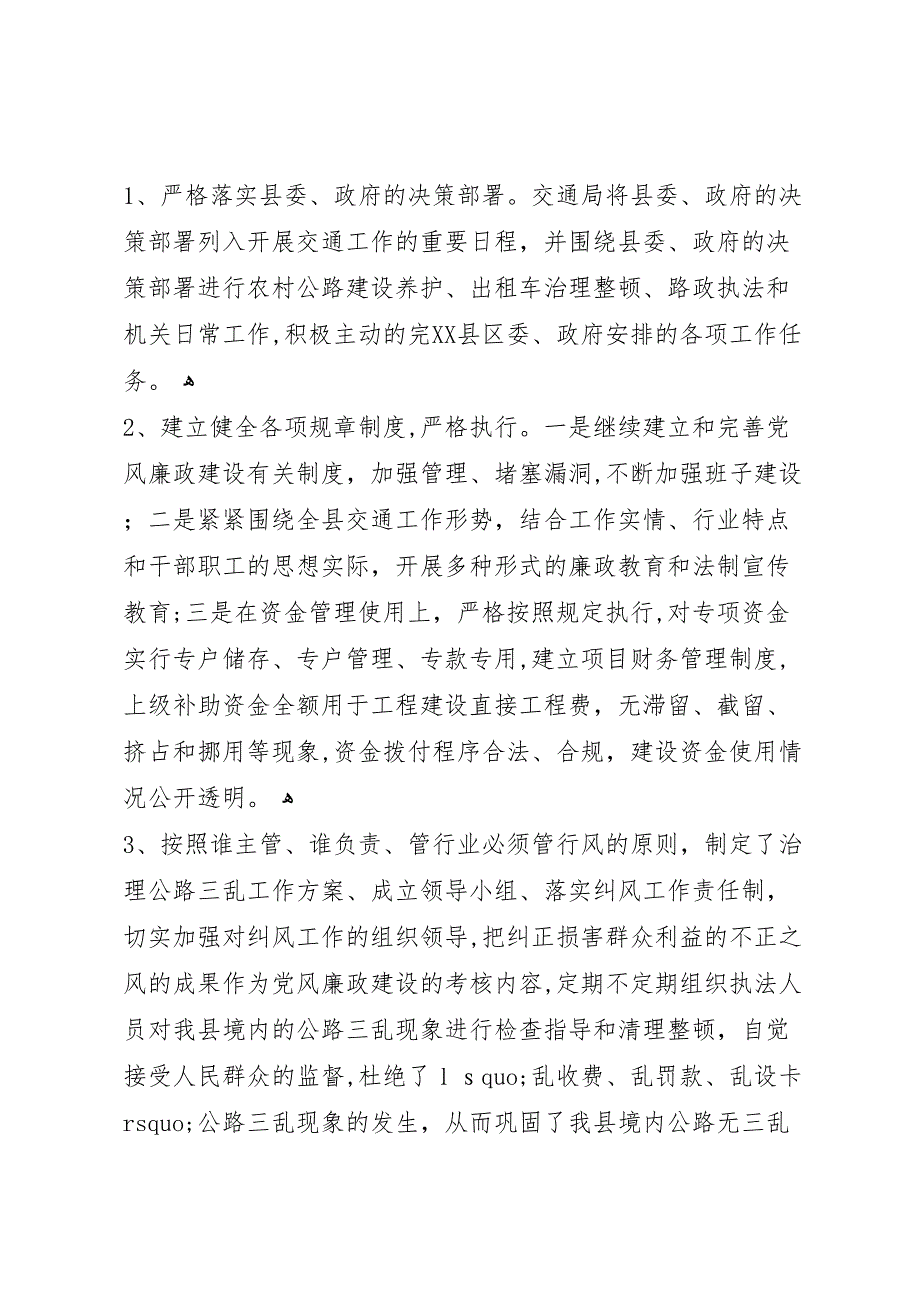 1、严格落实县委、政府的决策部署。交通局将县委、政府的决
策部署列入开展交通工作的重要日程，并围绕县委、政府的决
策部署进行农村公路建设养护、出租车治理整顿、路政执法和
机关日常工作,积极主动的完XX县区委、政府安排的各项工作任
务。 ﻫ
2、建立健全各项规章制度,严格执行。一是继续建立和完善党
风廉政建设有关制度，加强管理、堵塞漏洞,不断加强班子建设
；二是紧紧围绕全县交通工作形势，结合工作实情、行业特点
和干部职工的思想实际，开展多种形式的廉政教育和法制宣传
教育;三是在资金管理使用上，严格按照规定执行,对专项资金
实行专户储存、专户管理、专款专用,建立项目财务管理制度,
上级补助资金全额用于工程建设直接工程费，无滞留、截留、
挤占和挪用等现象,资金拨付程序合法、合规，建设资金使用情
况公开透明。 ﻫ
3、按照谁主管、谁负责、管行业必须管行风的原则，制定了治
理公路三乱工作方案、成立领导小组、落实纠风工作责任制，
切实加强对纠风工作的组织领导,把纠正损害群众利益的不正之
风的成果作为党风廉政建设的考核内容,定期不定期组织执法人
员对我县境内的公路三乱现象进行检查指导和清理整顿，自觉
接受人民群众的监督,杜绝了ｌｓquo;乱收费、乱罚款、乱设卡
rsquo;公路三乱现象的发生，从而巩固了我县境内公路无三乱